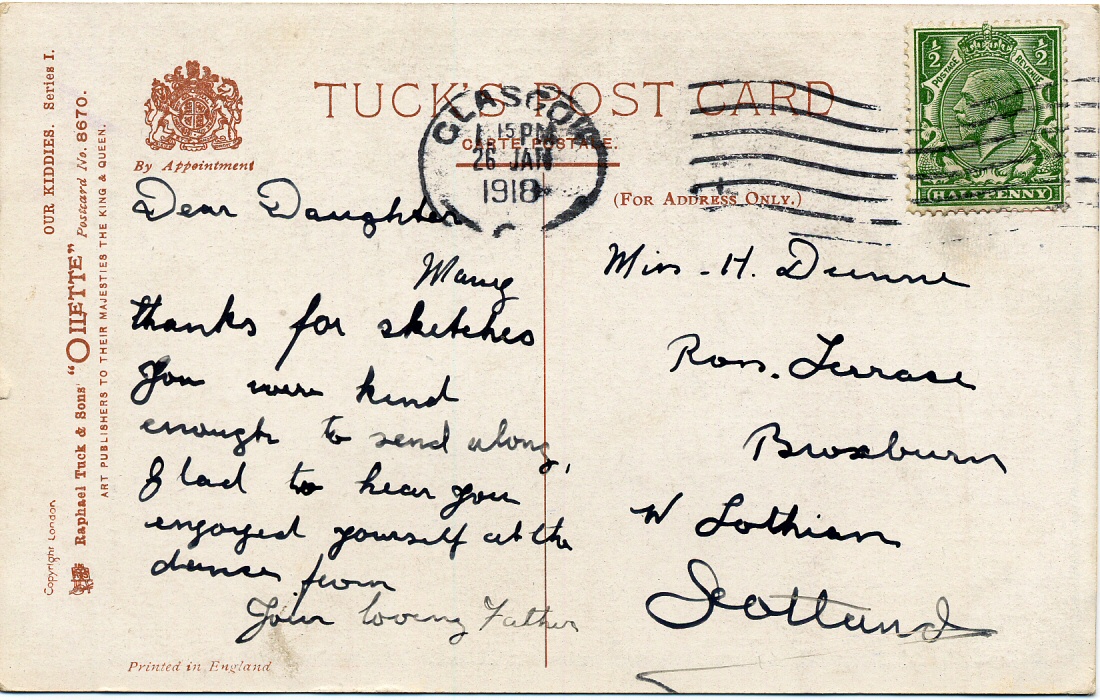 OUR KIDDIES. Series I.
Raphael Tuck & Sons' "OILETTE" Postcard No. 8670.
ART PUBLISHERS TO THEIR MAJESTIES THE KING & QUEEN.
Copyright London
By Appointment
TUCK'S POST CARD
CARTE POSTALE.
(FOR ADDRESS ONLY.)
GLASGOW
1 15 PM
26 JAN
1918
½ ½
POSTAGE REVENUE
HALFPENNY
Dear Daughter
Many
thanks for sketches
you were kind
enough to send along,
Glad to hear you
engoyed yourself at the
dance from
Your loving Father
Miss. H. Dunne
Ross. Terrace
Broxburn
W Lothian
Scotland
Printed in England